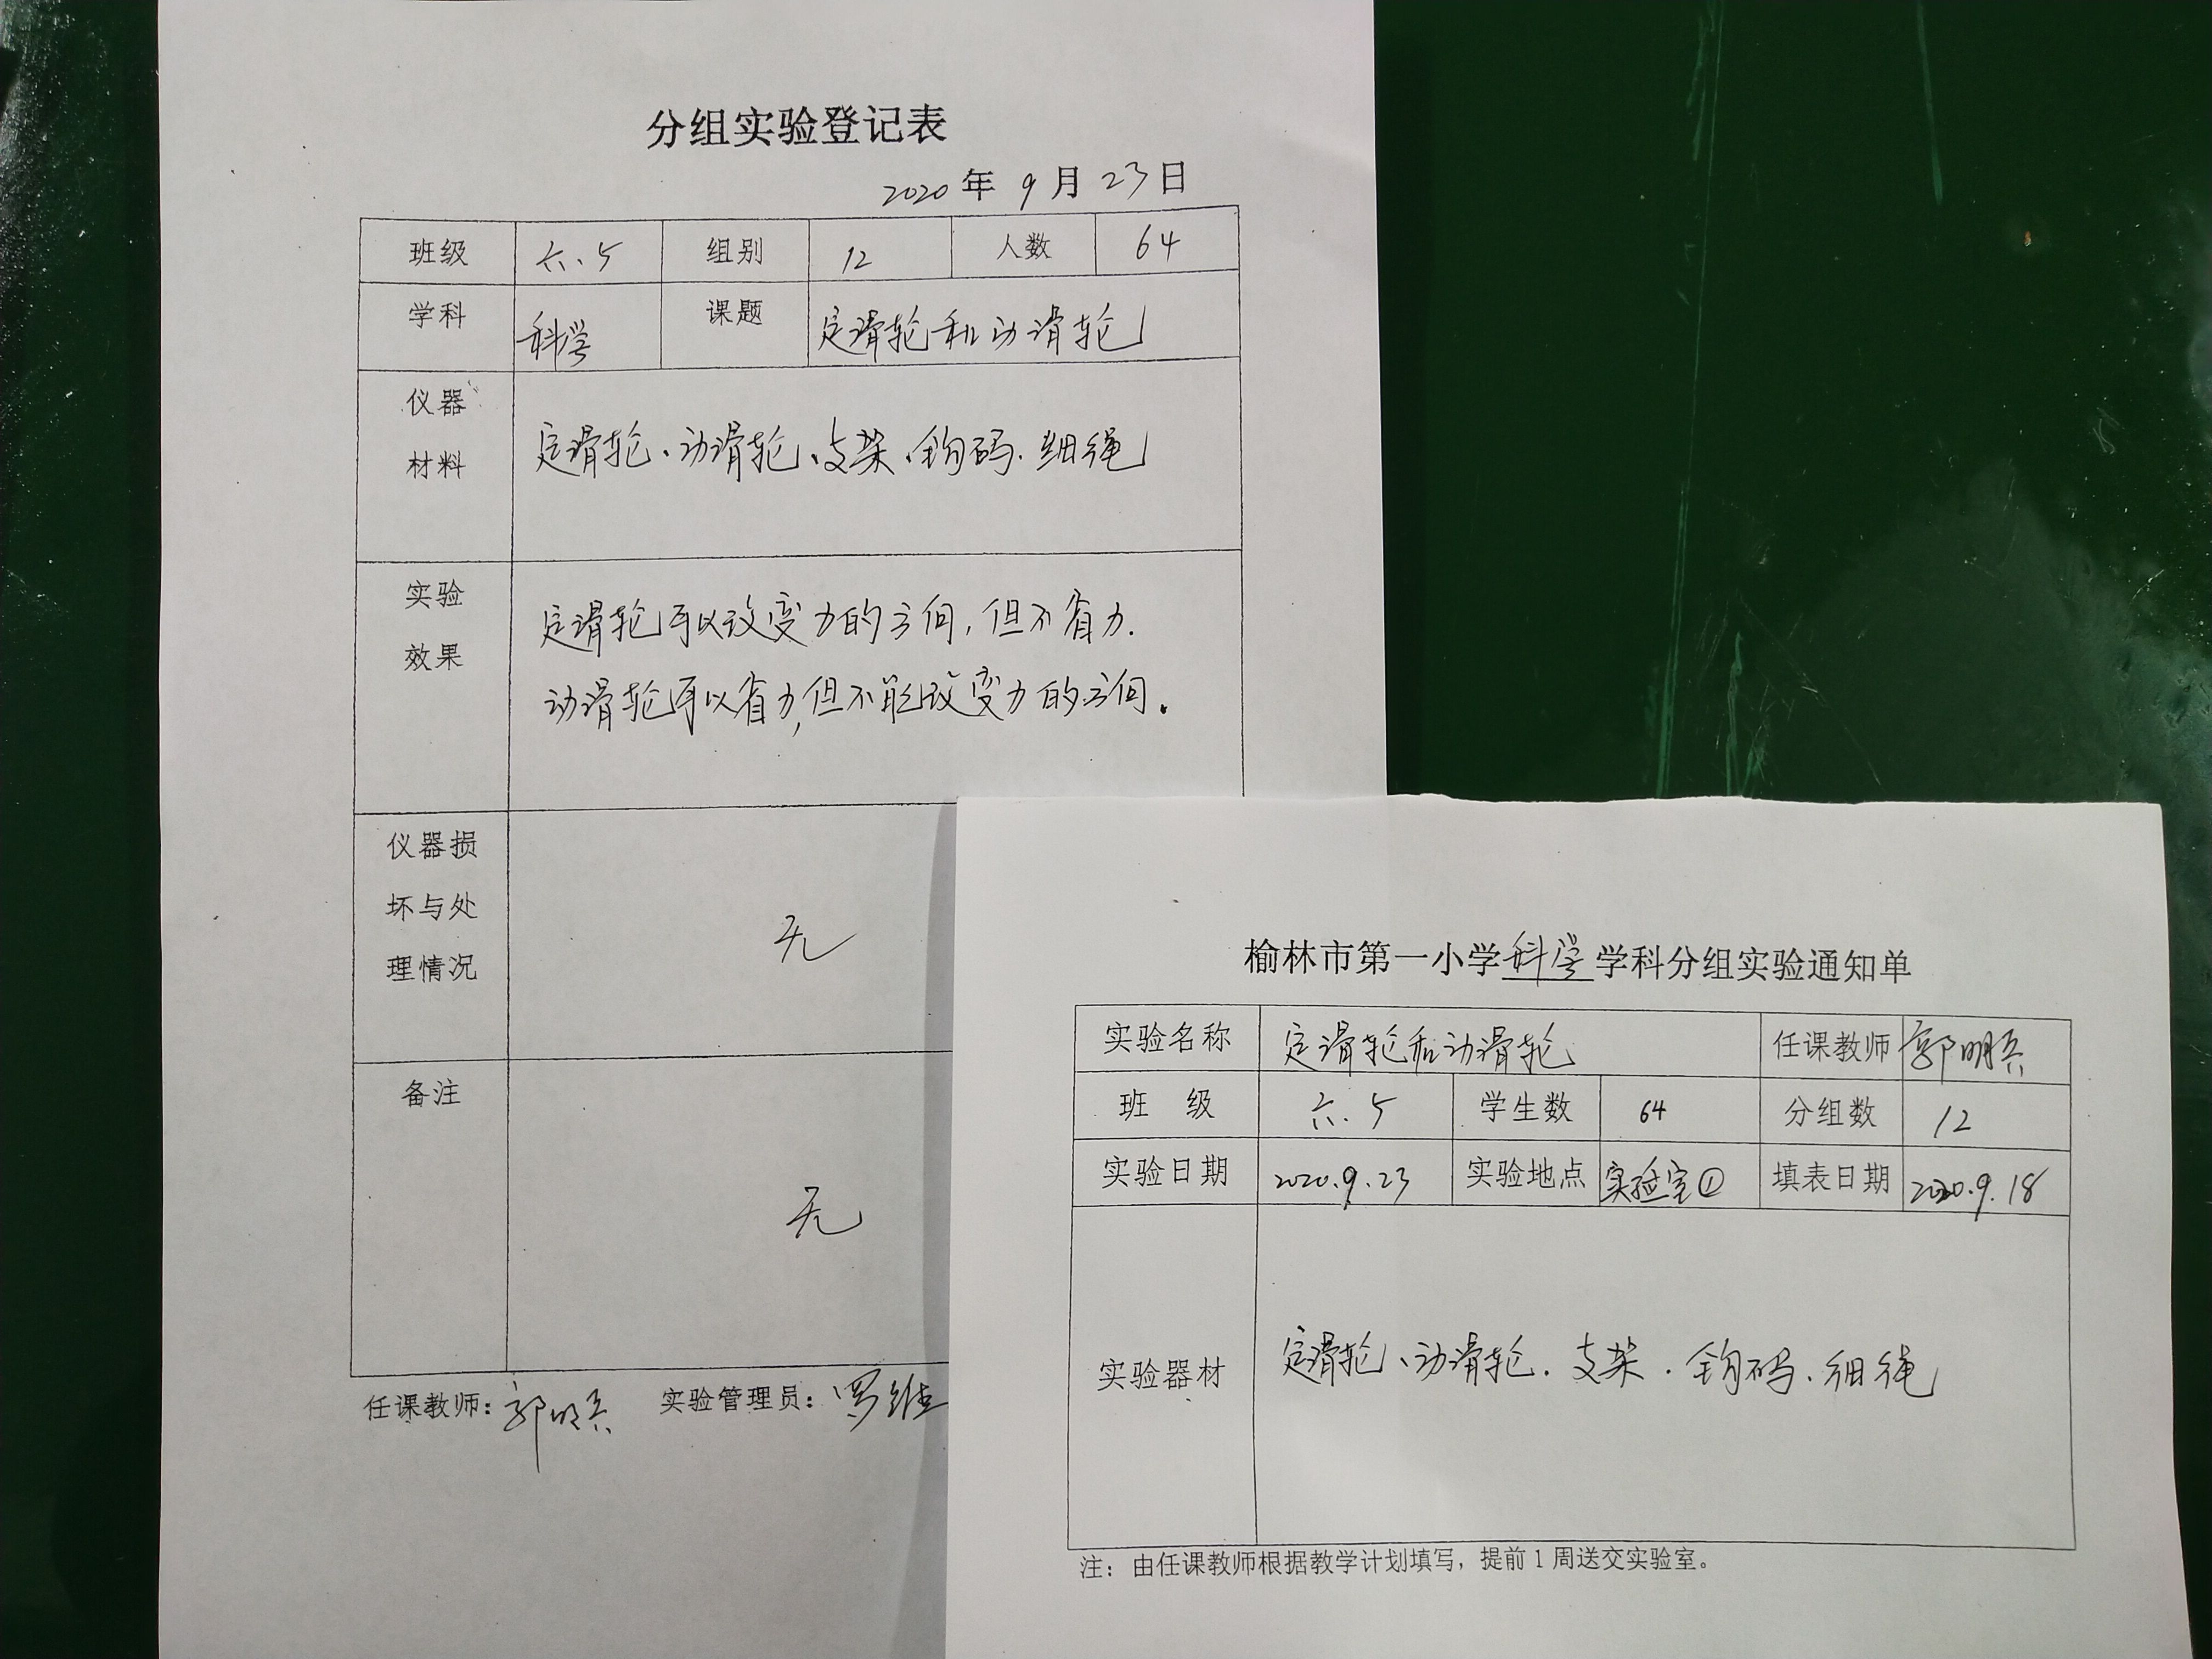 分组实验登记表
2020年9月23日
班级 六、5 组别 12 人数 64
学科 科学 课题 定滑轮和动滑轮
仪器
材料
定滑轮、动滑轮、支架、钩码、细绳
实验
效果
定滑轮可以改变力的方向,但不省力.
动滑轮可以省力,但不能改变力的方向。
仪器损
坏与处
理情况
无
备注
无
任课教师:郭明兵 实验管理员:罗维
榆林市第一小学科学学科分组实验通知单
实验名称 定滑轮和动滑轮 任课教师 郭明兵
班 级 六、5 学生数 64 分组数 12
实验日期 2020.9.23 实验地点 实验室① 填表日期 2020.9.18
实验器材 定滑轮、动滑轮、支架、钩码、细绳
注:由任课教师根据教学计划填写,提前1周送交实验室。